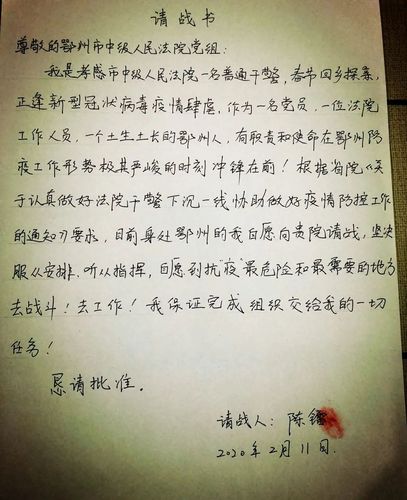 请战书
尊敬的鄂州市中级人民法院党组：
我是孝感市中级人民法院一名普通干警，春节回乡探亲，
正逢新型冠状病毒疫情肆虐，作为一名党员，一位法院
工作人员，一个土生土长的鄂州人，有职责和使命在鄂州防
疫工作形势极其严峻的时刻冲锋在前！根据省院《关
于认真做好法院干警下沉一线协助做好疫情防控工作
的通知》要求，目前身处鄂州的我自愿向贵院请战，坚决
服从安排、听从指挥，自愿到抗“疫”最危险和最需要的地方
去战斗！去工作！我保证完成组织交给我的一切
任务！
恳请批准。
请战人：陈
2020年2月11日.